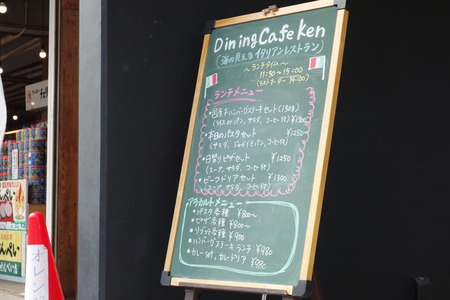 Dining Cafe Ken
(海の見える イタリアンレストラン)
～ランチタイム～
11:30～15:00
(ラストオーダー 14:00)
ランチメニュー
・国産牛ハンバーグステーキセット(150g)
(ライスorパン、サラダ、コーヒー付) ¥1500
・本日のパスタセット ¥1250
(サラダ、コーヒー付)
・日替りピザセット ¥1250
(スープ、サラダ、コーヒー付)
・ビーフドリアセット ¥1300
(スープ、サラダ、コーヒー付)
アラカルトメニュー
・パスタ各種 ¥800～
・ピザ各種 ¥800～
・リゾット各種 ¥900
・ハンバーグステーキランチ ¥980
・カレーset, カレードリア ¥980
オレン